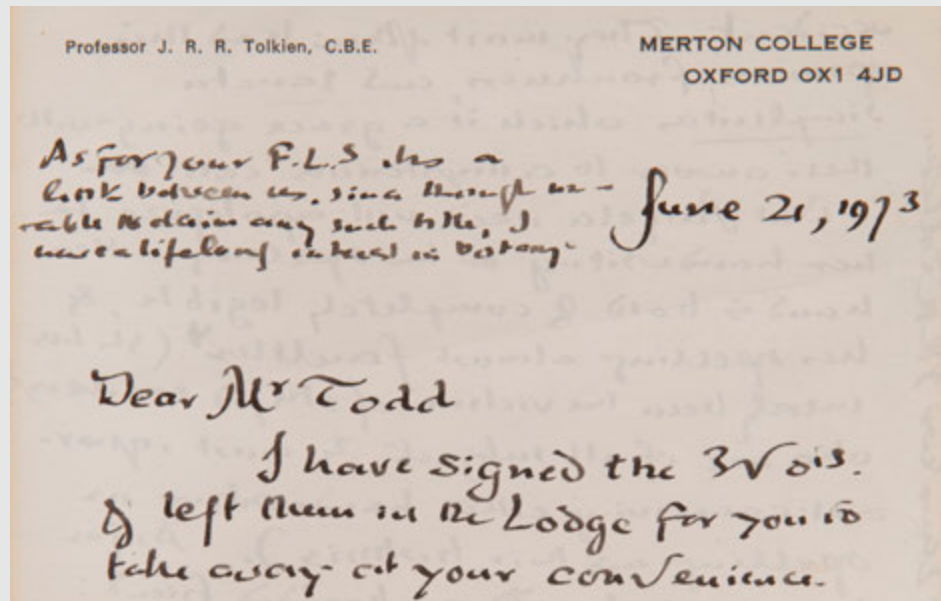 Professor J. R. R. Tolkien, C.B.E.
MERTON COLLEGE
OXFORD OX1 4JD
As for your F.L.S. its a
link between us, since though un-
able to claim any such title, I
have a lifelong interest in botany.
June 21, 1973
Dear Mr Todd
I have signed the 3 Vols.
& left them in the Lodge for you to
take away at your convenience.